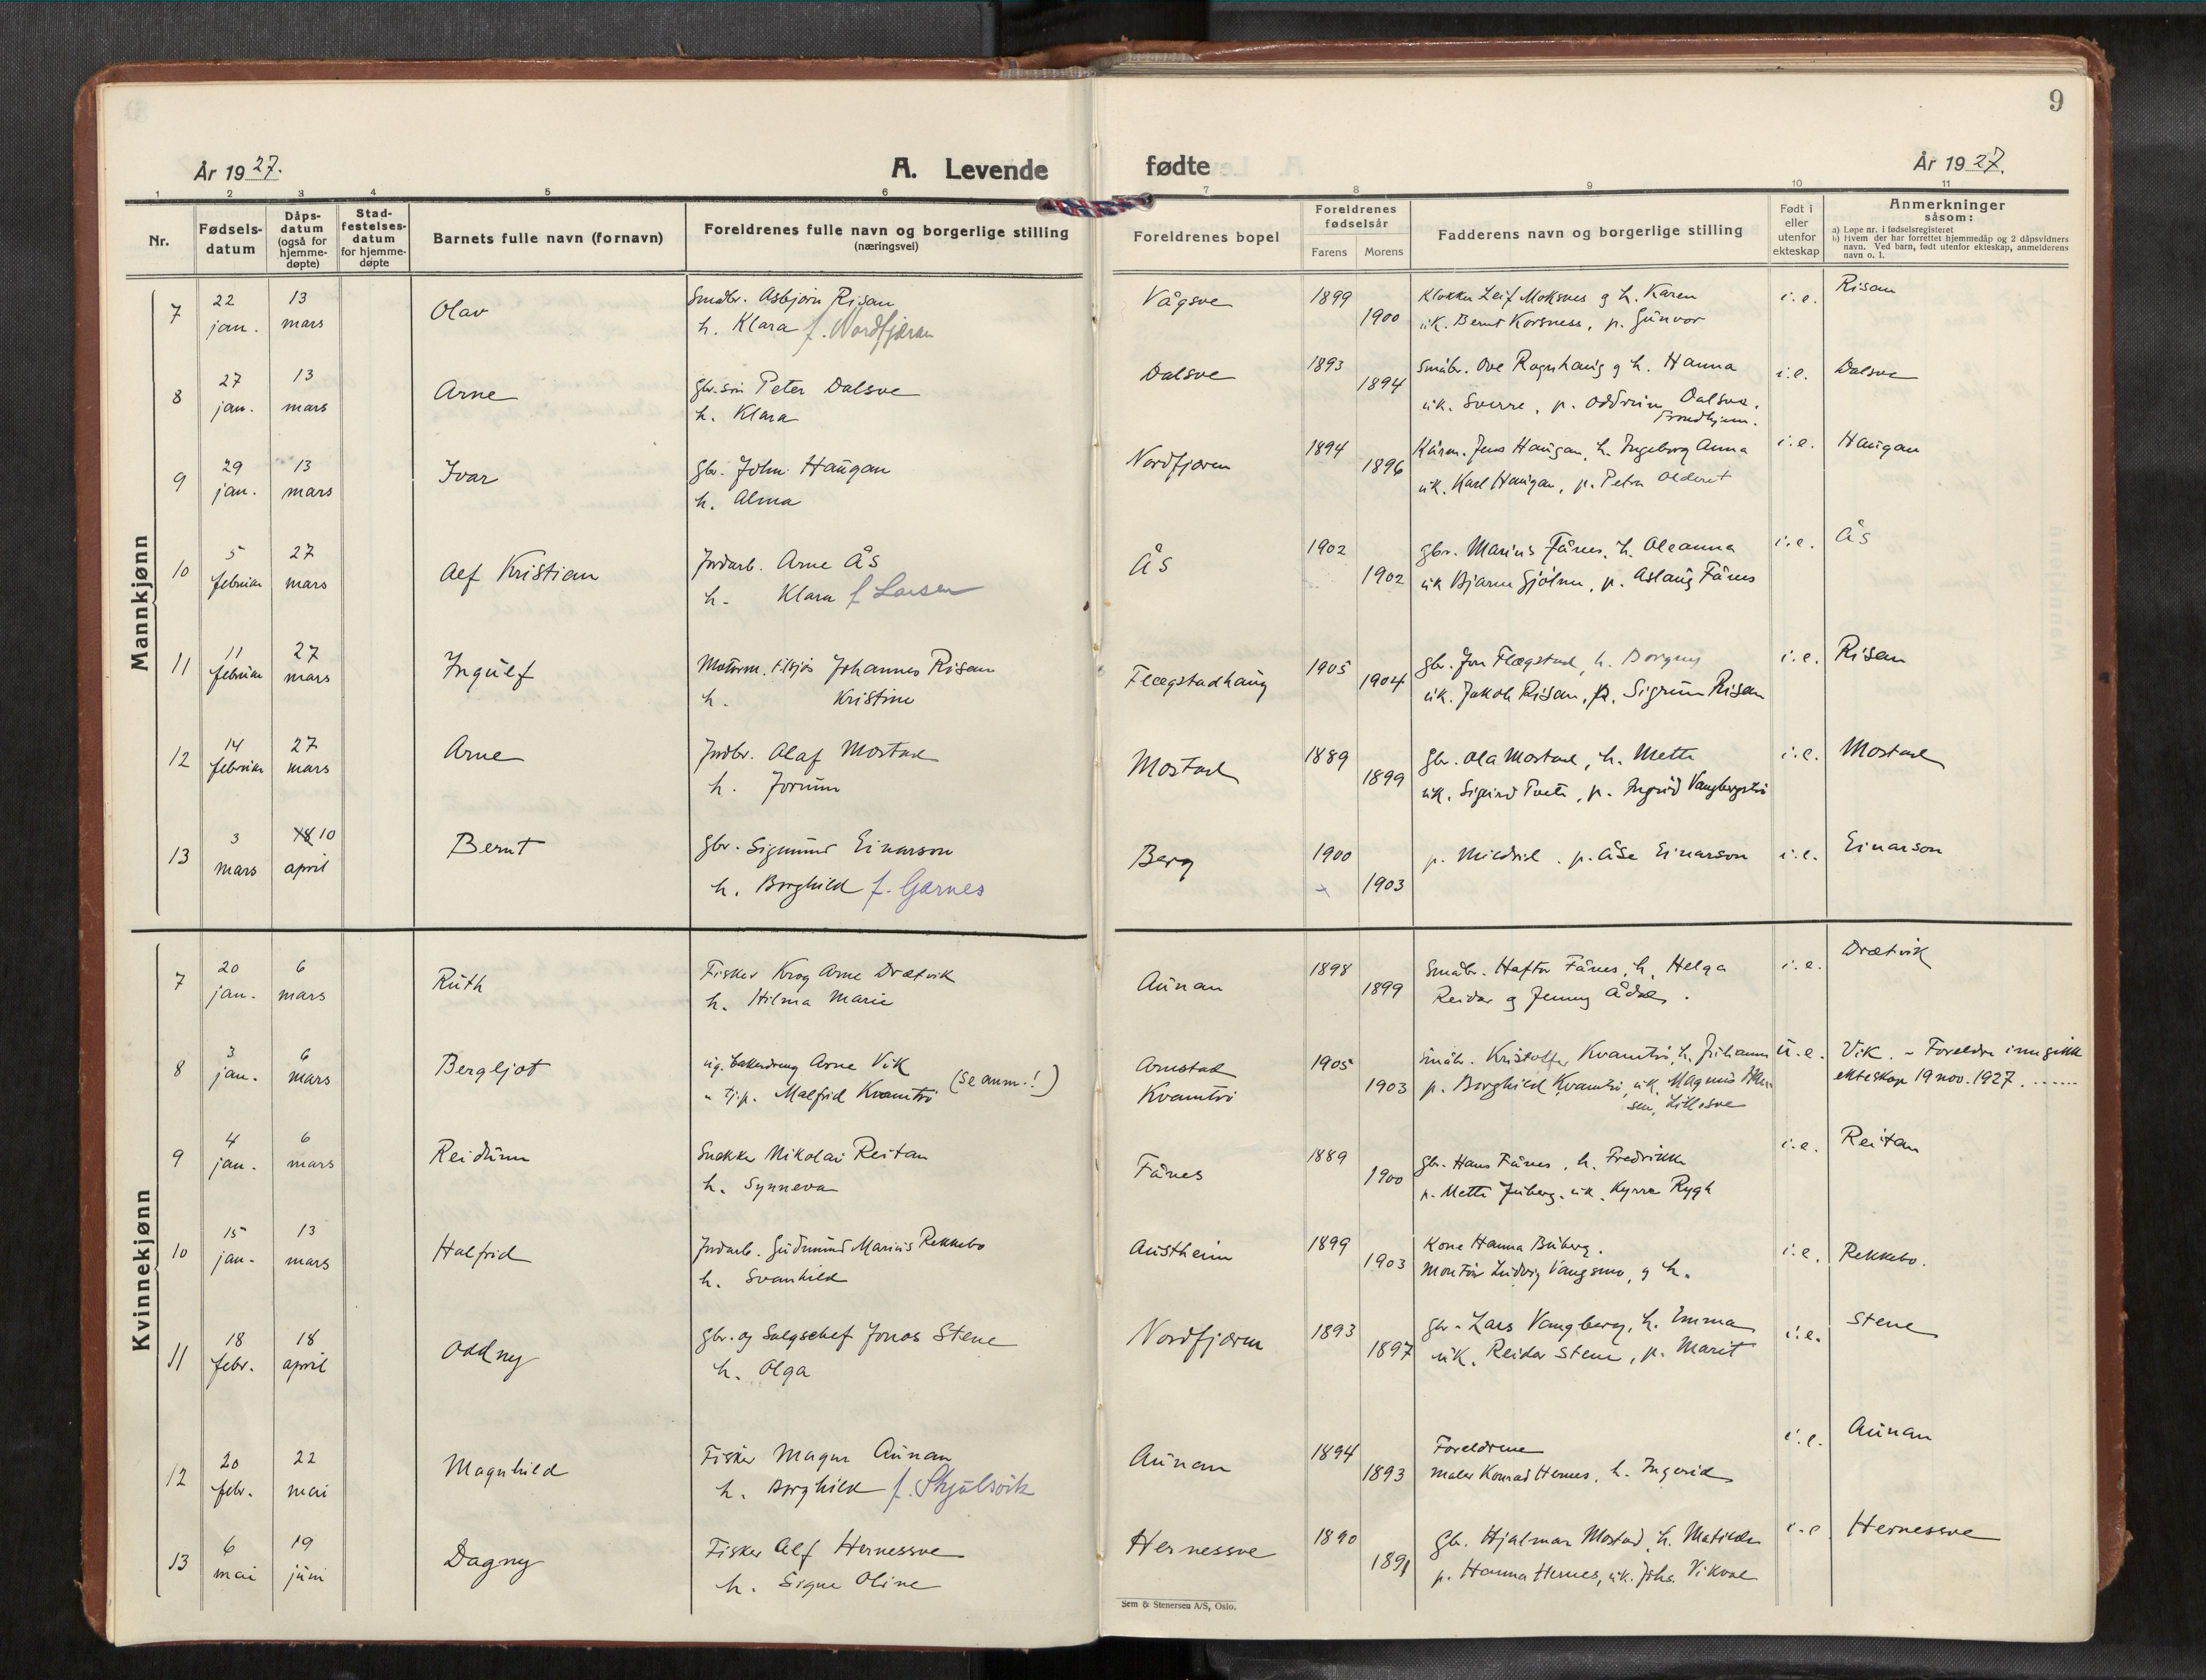 9
År 1927.
A. Levende fødte
År 1927.
1 2 3 4 5 6 7 8 9 10 11
Nr.
Fødsels-
datum
Dåps-
datum
(også for
hjemme-
døpte)
Stad-
festelses-
datum
for hjemme-
døpte
Barnets fulle navn (fornavn)
Foreldrenes fulle navn og borgerlige stilling
(næringsvei)
Foreldrenes bopel
Foreldrenes
fødselsår
Farens Morens
Fadderens navn og borgerlige stilling
Født i
eller
utenfor
ekteskap
Anmerkninger
såsom:
a) Løpe nr. i fødselsregisteret
b) Hvem der har forrettet hjemmedåp og 2 dåpsvidners
navn. Ved barn, født utenfor ekteskap, anmelderens
navn o. l.
Mannkjønn
7 22 jan. 13 mars Olav Småbr. Asbjørn Risan Vågsve 1899 Klokker Leif Moksnes g h. Karen i.e. Risan
h. Klara f. Nordfjæran 1900 uk. Bernt Korsness, p. Gunvor
8 27 jan. 13 mars Arne gbr.søn Peter Dalsve Dalsve 1893 Småbr. Ove Ragnhaug g h. Hanna i.e. Dalsve
h. Klara 1894 uk. Sverre, p. Oddrun Dalsve.
Trondhjem.
9 29 jan. 13 mars Ivar gbr. John Haugan Nordfjæren 1894 Kårm. Jens Haugan, h. Ingeborg Anna i.e. Haugan
h. Alma 1896 uk. Karl Haugan, p. Petra
10 5 februar 27 mars Alf Kristian Jndarb. Arne Ås Ås 1902 gbr. Marius Fånes, h. Oleanna i.e. Ås
h. Klara f Larsen 1902 uk Bjarne Gjølme, p. Aslaug Fånes
11 11 februar 27 mars Ingulf Motorm. tilsjøs Johannes Risan Flægstadhaug 1905 gbr. Jon Flægstad, h. Borgny i.e. Risan
h. Kristine 1904 uk. Jakob Risan, p. Sigrun Risan
12 14 februar 27 mars Arne Jndbr. Olaf Mostad Mostad 1889 gbr. Ola Mostad, h. Mette i.e. Mostad
h. Jorunn 1899 uk. Sigurd Tveti, p. Ingrid Vangbergstrø
13 3 mars 18 10 april Bernt gbr. Sigmund Einarson Berg 1900 p. Mildrid. p. Åse Einarson i.e. Einarson
h. Borghild f. Garnes 1903
Kvinnekjønn
7 20 jan. 6 mars Ruth Fisker Krog Arne Drætvik Aunan 1898 Småbr. Haftor Fånes, h. Helga i.e. Drætvik
h. Hilma Marie 1899 Reidar g Jenny Ådal.
8 3 jan. 6 mars Bergljot ug. bakerdreng Arne Vik (Se anm.!) Arnstad 1905 Småbr. Kristoffer Kvamtrø, h. Johanna u.e. Vik. - Foreldre inngikk
" tj.p. Malfrid Kvamtrø Kvamtrø 1903 p. Borghild Kvamtrø, uk. Magnus ekteskap 19 nov. 1927. ......
sen, Lillesve
9 4 jan. 6 mars Reidunn Snekker Nikolai Reitan Fånes 1889 gbr. Hans Fånes, h. Fredrikke i.e. Reitan
h. Synneva 1900 p. Mette Juberg. uk. Kyrre Rygh
10 15 jan. 13 mars Halfrid Jndarb. Gudmund Marius Rekkebo Austheim 1899 Kone Hanna Buberg. i.e. Rekkebo.
h. Svanhild 1903 Montør Ludvig Vangsmo, g h.
11 18 febr. 18 april Oddny gbr. og Salgschef Jonas Stene Nordfjæren 1893 gbr. Lars Vangberg, h. Emma i.e. Stene
h. Olga 1897 uk. Reidar Stene, p. Marit
12 20 febr. 22 mai Magnhild Fisker Magne Aunan Aunan 1894 Foreldrene i.e. Aunan
h. Borghild f. Skjulsvik 1893 maler Konrad Hernes, h. Ingerid
13 6 mai 19 juni Dagny Fisker Alf Hernessve Hernessve 1890 Gbr. Hjalmar Mostad, h. Matilde i.e Hernessve
h. Signe Oline 1891 p. Hanna Hernes, uk. Johs. Vikvoe
Sem & Stenersen A/S, Oslo.